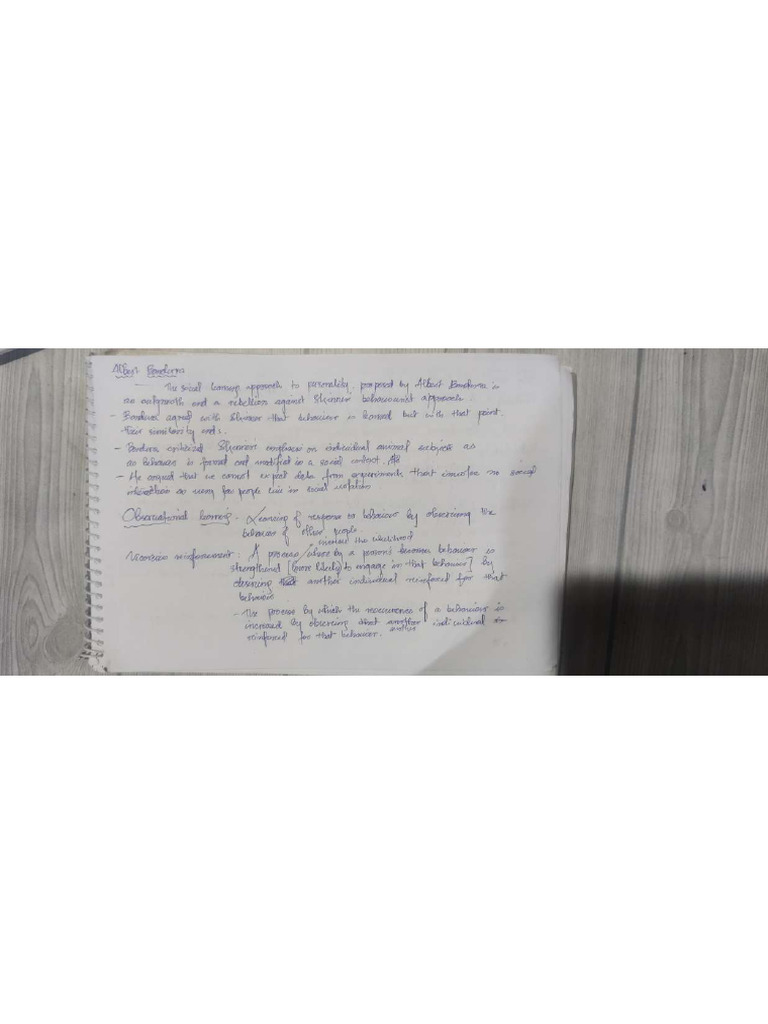 Albert Bandura
— The social learning approach to personality, proposed by Albert Bandura is
an outgrowth and a rebellion against Skinner behaviourist approach.
- Bandura agreed with Skinner that behaviour is learned but with that point
their similarity ends.
- Bandura criticized Skinner's emphasis on individual animal subjects as
as behaviour is formed and modified in a social context.
- He argued that we cannot expect data from experiments that involve no social
interaction as very few people live in social isolation
Observational learning - Learning of response to behaviour by observing the
behaviour of other people.
increase the likelihood
Vicarious reinforcement : A process where by a person's behaviour is
strengthened [more likely to engage in that behaviour] by
observing another individual reinforced for that
behaviour
- The process by which the reoccurence of a behaviour is
increased by observing another individual
reinforced for that behaviour.